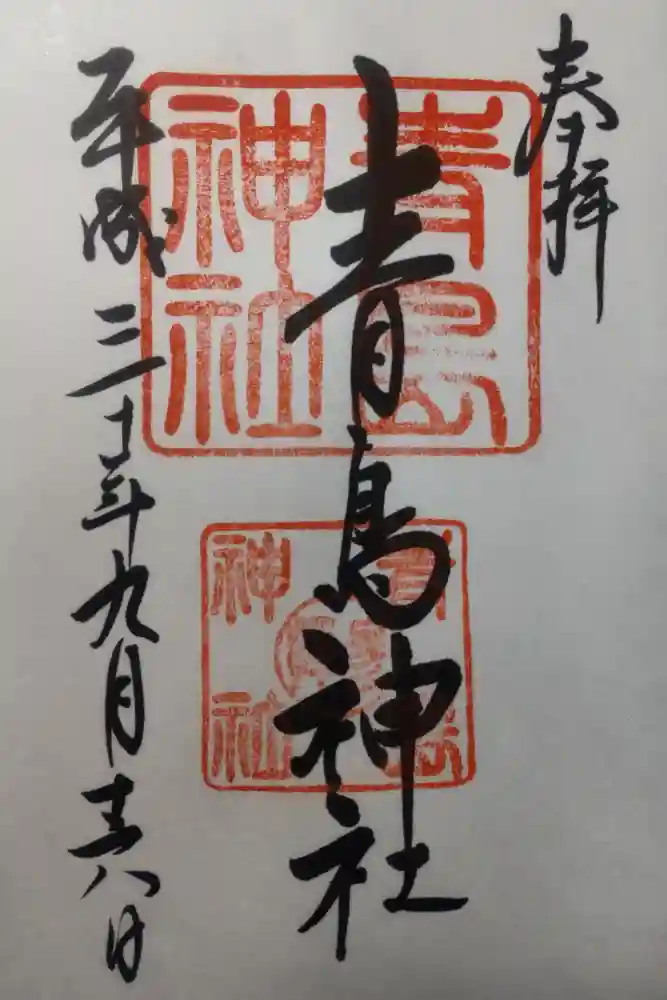 奉拝
青島神社
青島
神社
神社
平成三十年九月 八日